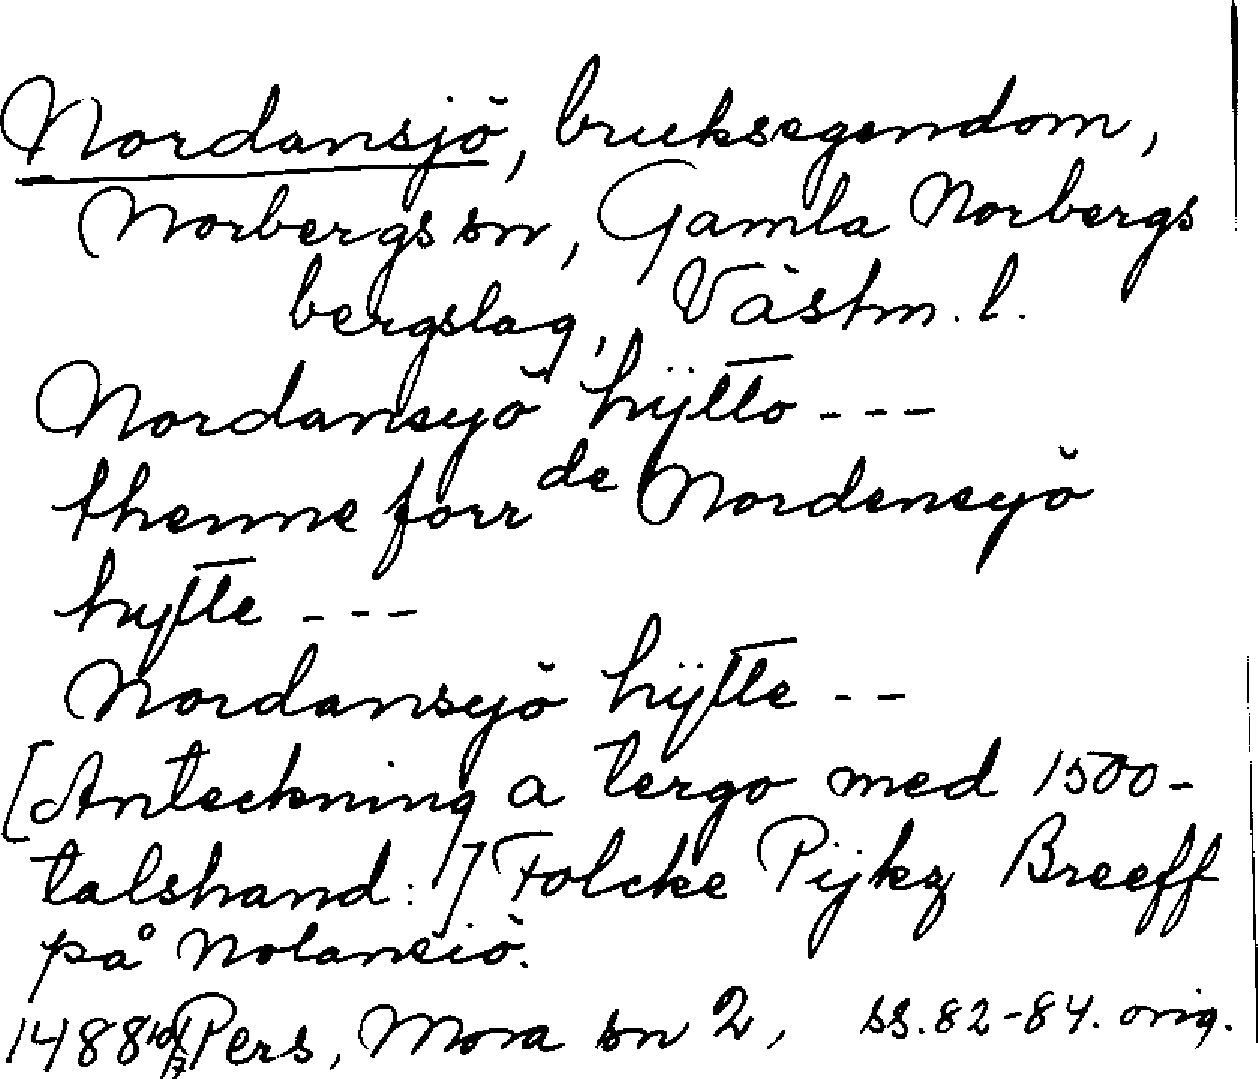 Nordansjö, bruksegendom,
Norbergs sn, Gamla Norbergs
bergslag, Västm. l.
Nordansyö hÿtto ---
thenne forr de Nordensyö
hytte ---
Nordansyö hÿtte --
[Anteckning a tergo med 1500-
talshand:] Folcke Pijkz Breeff
på Nolansiö.
1488 Pers, Mora sn 2, ss. 82-84. orig.